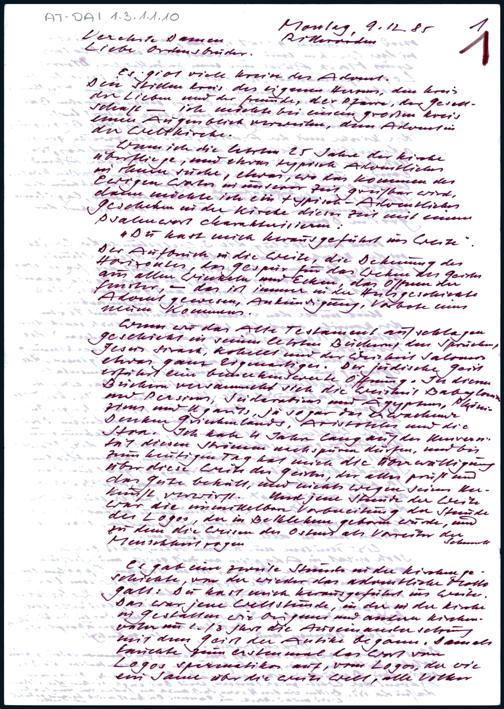 AT-DAI 1.3.1.1.10
1
Montag, 9.12.85
Verehrte Damen
Ritterorden
1
Liebe Ordensbrüder.
Es gibt viele Kreise des Advent.
Den stillen Kreis des eigenen Herzens, den Kreis
der Lieben und der Freunde, der Pfarre, der Gesell-
schaft – ich möchte bei einem großen Kreis
einen Augenblick verweilen, dem Advent in
der Weltkirche.
Wenn ich die letzten 25 Jahre der Kirche
überfliege, und etwas typisch Adventliches
in ihnen suche, etwas, wo das Kommen des
Ewigen Wortes in unserer Zeit greifbar wird,
dann möchte ich ein typisch-Adventliches
Geschehen in der Kirche dieser Zeit mit einem
Psalmenwort charakterisieren:
"Du hast mich herausgeführt ins Weite".
Der Aufbruch in die Weite, die Dehnung des
Horizontes, das Gespür für das Wehen des Geistes
aus allen Winkeln und Ecken, das Öffnen der
Fenster, – das ist immer in der Heilsgeschichte
Advent gewesen, Ankündigung, Vorbote eines
neuen Kommens.
Wenn wir das Alte Testament aufschlagen
geschieht in seinen letzten Büchern, den Sprüchen,
Jesus Sirach, Kohelet und der Weisheit Salomos
etwas ganz Eigenartiges: Der jüdische Geist
erfährt eine bemerkenswerte Öffnung. In diesen
Büchern versammelt sich die Weisheit Babylons
und Persiens, Ägyptens,
und Ugarits, ja sogar das Erwachende
Denken Griechenlands, Aristoteles und die
Stoa. Ich hab 4 Jahre lang auf der Universi-
tät diesen Strömen nachspüren dürfen, und bis
zum heutigen Tag hat mich die Überwältigung
über diese Weite des Geistes, der alles prüft und
das Gute behält, und nichts wegen seiner Her-
kunft verwirft. Und jene Stunde der Weite
war die unmittelbare Vorbereitung der Stunde
des Logos, der in Bethlehem geboren wurde, und
zu dem die Weisen des Ostens als Vorreiter der
Menschheit zogen
Es gab eine zweite Stunde in der Kirchenge-
schichte, von der wieder das adventliche Motto
galt: Du hast mich herausgeführt ins Weite.
Das war jene Weltstunde, in der in der Kirche
in Gestalten wie Origenes und anderen Kirchen-
vätern die Auseinandersetzung
mit dem Geist der Antike begann. Damals
tauchte zum erstenmal das Wort vom
Logos spermatikos auf, vom Logos, der wie
ein Same über die weite Welt, alle Völker